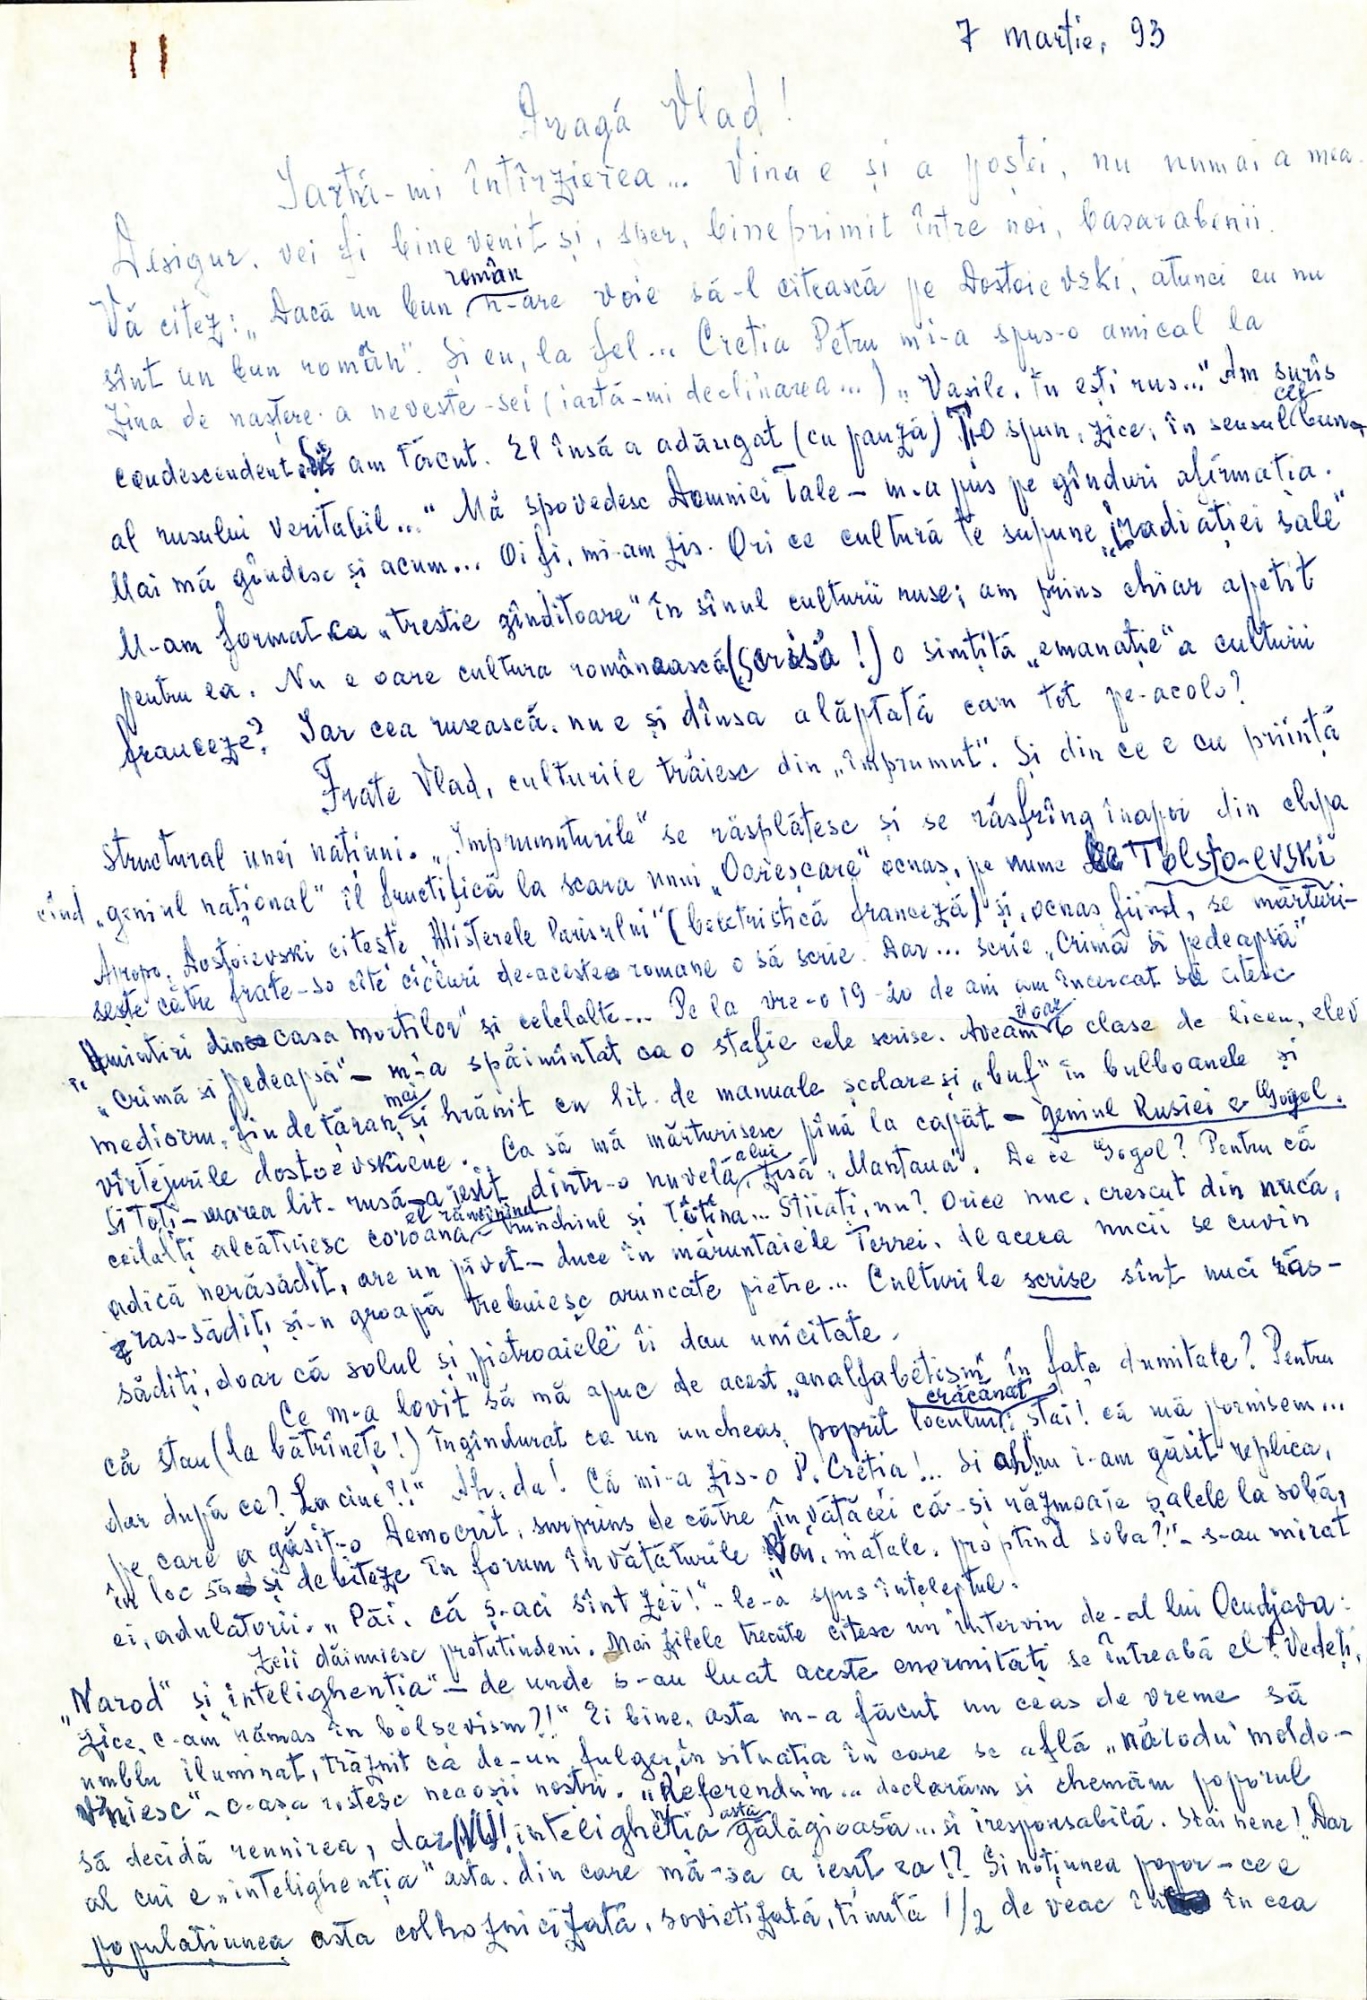 7 martie, 93
Dragă Vlad!
Iartă-mi întîrzierea... Vina e și a poștei, nu numai a mea.
Desigur, vei fi bine venit și, sper, bine primit între noi, basarabenii.
Vă citez: „Dacă un bun român n-are voie să-l citească pe Dostoievski, atunci eu nu
sînt un bun român". Și eu, la fel... Cretia Petru mi-a spus-o amical la
ziua de naștere a neveste-sei (iartă-mi declinarea...) „Vasile, tu ești rus..." Am surîs
condescendent. Și am tăcut. El însă a adăugat (cu pauză) „Ți-o spun, zice, în sensul cel bun
al rusului veritabil..." Mă spovedesc Domniei Tale – m-a pus pe gînduri afirmația.
Mai mă gîndesc și acum... Oi fi, mi-am zis. Ori ce cultură te supune „iradiăției sale"
M-am format ca „trestie gînditoare" în sînul culturii ruse; am prins chiar apetit
pentru ea. Nu e oare cultura românească (scrisă!) o simțită „emanație" a culturii
franceze? Iar cea rusească, nu e și dînsa alăptată cam tot pe-acolo?
Frate Vlad, culturile trăiesc din „împrumut". Și din ce e cu priință
structural unei națiuni. „Împrumuturile" se răsplătesc și se răsfrîng înapoi din clipa
cînd „geniul național" îl fructifică la scara unui „Oarescare" ocnaș, pe nume Tolsto-evski
Apropo, Dostoievski citește „Misterele Parisului" (beletristică franceză) și, ocnaș fiind, se mărturi-
sește către frate-so cîte cicluri de-aceste romane o să scrie. Dar... scrie „Crimă și pedeapsă"
„Amintiri din casa morților" și celelalte... Pe la vre-o 19-20 de ani am încercat să citesc
„Crimă și pedeapsă" – m-a spăimîntat ca o stafie cele scrise. Aveam doar 6 clase de liceu, elev
mediocru, fiu de țăran, și mai hrănit cu lit. de manuale școlare și „buf" în bulboanele și
vîrtejurile dostoevskiene. Ca să mă mărturisesc pînă la capăt – geniul Rusiei e Gogol.
Și toți – marea lit. rusă – a ieșit dintr-o nuvelă a lui zisă „Mantaua". De ce Gogol? Pentru că
ceilalți alcătuiesc coroana – el rămînînd trunchiul și tótina... Știiați, nu? Orice nuc, crescut din nucă,
adică nerăsădit, are un pivot – duce în măruntaiele Terrei, de aceea nucii se cuvin
răs-sădiți și-n groapă trebuiesc aruncate pietre... Culturile scrise sînt nuci răs-
sădiți, doar că solul și „pietroaiele" îi dau unicitate.
Ce m-a lovit să mă apuc de acest „analfabetism" în fața dumitale? Pentru
că stau (la bătrînețe!) îngîndurat ca un uncheaș, poprit crăcănat locului: „stai! că mă pornisem...
dar după ce? La cine?!" Ah, da! Că mi-a zis-o P. Cretia!... Și nu i-am găsit replica,
pe care a găsit-o Democrit, surprins de către învățăcei că-și răzmoaie șalele la sobă,
în loc să-și debiteze în forum învățăturile „Vai, matale, proptind soba?" – s-au mirat
ei, adulatorii. „Păi, că ș-aci sînt zei!" – le-a spus înțeleptul.
Zeii dăinuiesc pretutindeni. Mai zilele trecute citesc un interviu de-al lui Ocudjava:
„Narod" și „intelighenția" – de unde s-au luat aceste enormități se întreabă el? Vedeți,
zice, c-am rămas în bolșevism?!" Ei bine, asta m-a făcut un ceas de vreme să
umblu iluminat, trăznit ca de-un fulger, în situația în care se află „nărodu moldo-
viniesc" – c-așa rostesc neaoșii noștri. „Referendum... declarăm și chemăm poporul
să decidă reunirea, dar NU! intelighenția asta gălăgioasă... și iresponsabilă. Stai nene! Dar
al cui e „intelighenția" asta, din care mă-sa a ieșit ea!? Și noțiunea popor – ce e
populațiunea asta colhoznicizată, sovietizată, ținută 1/2 de veac în cea